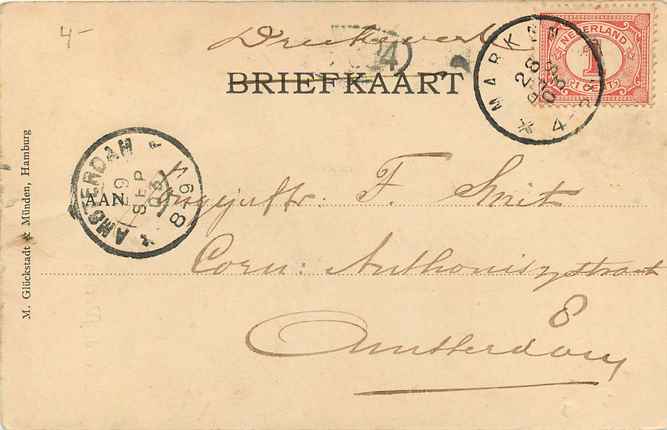 4-
Drukwerk
24
BRIEFKAART
NEDERLAND
1
CENT
MARKEN
28
SEP
05
4-
AMSTERDAM
29
SEP
05
8-9 V
AAN
F. Smit
Corn: Anthoniszstraat
8
Amsterdam
M. Glückstadt & Münden, Hamburg